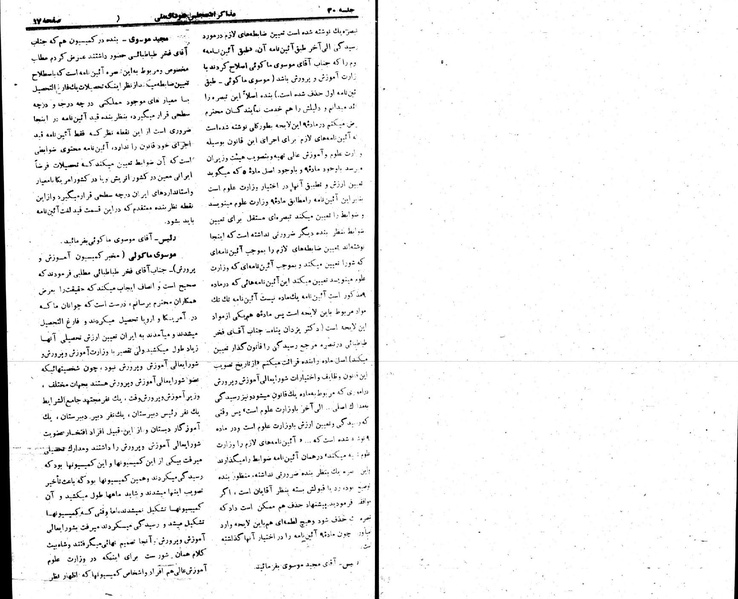 جلسه ۳۰ مذاکرات مجلس شورای ملی صفحه ۱۷
تبصره یك نوشته شده است تعیین ضابطه‌های لازم درمورد
رسیدگی الی‌آخر طبق آئین‌نامه آن، طبق آئین‌نامه
وم را که جناب آقای موسوی ماکوئی اصلاح کردند با
زارت آموزش و پرورش باشد (موسوی ماکوئی - طبق
ئین‌نامه اول حذف شده است.) بنده اصلا این تبصره را
ئد میدانم و دلیلش را هم خدمت نمایندگان محترم
رض میکنم درماده ۹ این لایحه بطورکلی نوشته شده‌است
ه آئین‌نامه‌های لازم برای اجرای این قانون بوسیله
زارت علوم و آموزش عالی تهیه و بتصویب هیئت وزیران
میرسد باوجود ماده ۹ و باوجود اصل ماده ۵ که میگوید
تعیین ارزش و تطبیق آنها در اختیار وزارت علوم است
بنابر این آئین‌نامه را مطابق ماده ۹ وزارت علوم مینویسد
و ضوابط را تعیین میکند تبصره‌ای مستقل برای تعیین
ضوابط بنظر بنده دیگر ضرورتی نداشته است که اینجا
نوشته‌اند تعیین ضابطه‌های لازم را بموجب آئین‌نامه‌ای
که شورا تعیین میکند و بموجب آئین‌نامه‌ای که وزارت
علوم مینویسد تعیین میکند این آئین‌نامه‌هائی که درماده
۹ مذکور است آئین‌نامه یك ماده نیست آئین‌نامه تك تك
مواد مربوط باین لایحه است پس ماده ۵ هم یکی ازمواد
این لایحه است (دکتر یزدان پناه - جناب آقای فخر
طباطبائی درتبصره مرجع رسیدگی را قانون‌گذار تعیین
میکند) اصل ماده را بنده قرائت میکنم «از تاریخ تصویب
این قانون وظایف و اختیارات شورایعالی آموزش وپرورش
درامری که مربوط به ماده یك قانون میشود و نیز رسیدگی
بمدارك اصلی... الی آخر با وزارت علوم است» پس وقتی
که رسیدگی و تعیین ارزش با وزارت علوم است ودر ماده
۹ نوشته شده است که ... « آئین‌نامه‌های لازم را وزارت
علوم تهیه میکند» درهمان آئین‌نامه ضوابط را میگذارند
واین تبصره یك بنظر بنده ضرورتی نداشته، منظور بنده
توضیح بود، رد یا قبولش بسته بنظر آقایان است ، اگر
موافقت فرمودید پیشنهاد حذف هم ممکن است داد که
تبصره ۱ حذف شود وهیچ لطمه‌ای هم باین لایحه وارد
نمیآورد چون ماده ۹ آئین‌نامه را در اختیار آنها گذاشته
رئیس - آقای مجید موسوی بفرمائید.
مجید موسوی - بنده در کمیسیون هم که جناب
آقای فخر طباطبائی حضور داشتند عرض کردم مطالب
مخصوص ومربوط به این تبصره آئین‌نامه است که باصطلاح
تعیین ضابطه میکند از نظر اینکه تحصیلات یك فارغ‌التحصیل
با معیار های موجود مملکتی درچه درجه و درچه
سطحی قرار میگیرد، بنظر بنده قید آئین‌نامه در اینجا
ضروری است از این نقطه نظر که فقط آئین‌نامه قید
اجرای خود قانون را ندارد، آئین‌نامه محتوی ضوابطی
است که آن ضوابط تعیین میکند که تحصیلات فرضاً
ایرانی معین در کشور اتریش ویا در کشور امریکا با معیار
واستانداردهای ایران درچه سطحی قرار میگیرد و از این
نقطه نظر بنده معتقدم که در این قسمت قید لغت آئین‌نامه
باید بشود.
رئیس - آقای موسوی ماکوئی بفرمائید.
موسوی ماکوئی (مخبر کمیسیون آموزش و
پرورش) - جناب آقای فخر طباطبائی مطلبی فرمودند که
صحیح است و انصاف ایجاب میکند که حقیقت را بعرض
همکاران محترم برسانم، درست است که جوانان ما که
در آمریکا و اروپا تحصیل میکردند و فارغ التحصیل
میشدند و میآمدند به ایران تعیین ارزش تحصیلی آنها
زیاد طول میکشید ولی تقصیر با وزارت آموزش وپرورش و
شورایعالی آموزش وپرورش نبود ، چون شخصیتهائیکه
عضو شورایعالی آموزش وپرورش هستند بجهات مختلف ،
وزیر آموزش وپرورش وقت، یك نفر مجتهد جامع‌الشرایط
یك نفر رئیس دبیرستان ، یك نفر دبیر دبیرستان ، یك
آموزگار دبستان و از این قبیل افراد افتخار عضویت
شورایعالی آموزش وپرورش را داشتند ومدارك تحصیلی
میرفت بیکی از این کمیسیونها و این کمیسیونها بود که
رسیدگی میکردند وهمین کمیسیونها بود که باعث تأخیر
تصویب اینها میشدند و شاید ماهها طول میکشید و آن
کمیسیونها تشکیل نمیشدند، اما وقتی که کمیسیونها
تشکیل میشد و رسیدگی میکردند میرفت بشورایعالی
آموزش وپرورش و آنجا تصمیم نهائی میگرفتند وشاه بیت
کلام همان شورا است برای اینکه در وزارت علوم
آموزش عالی هم افراد واشخاص کمیسیونها که اظهار نظر